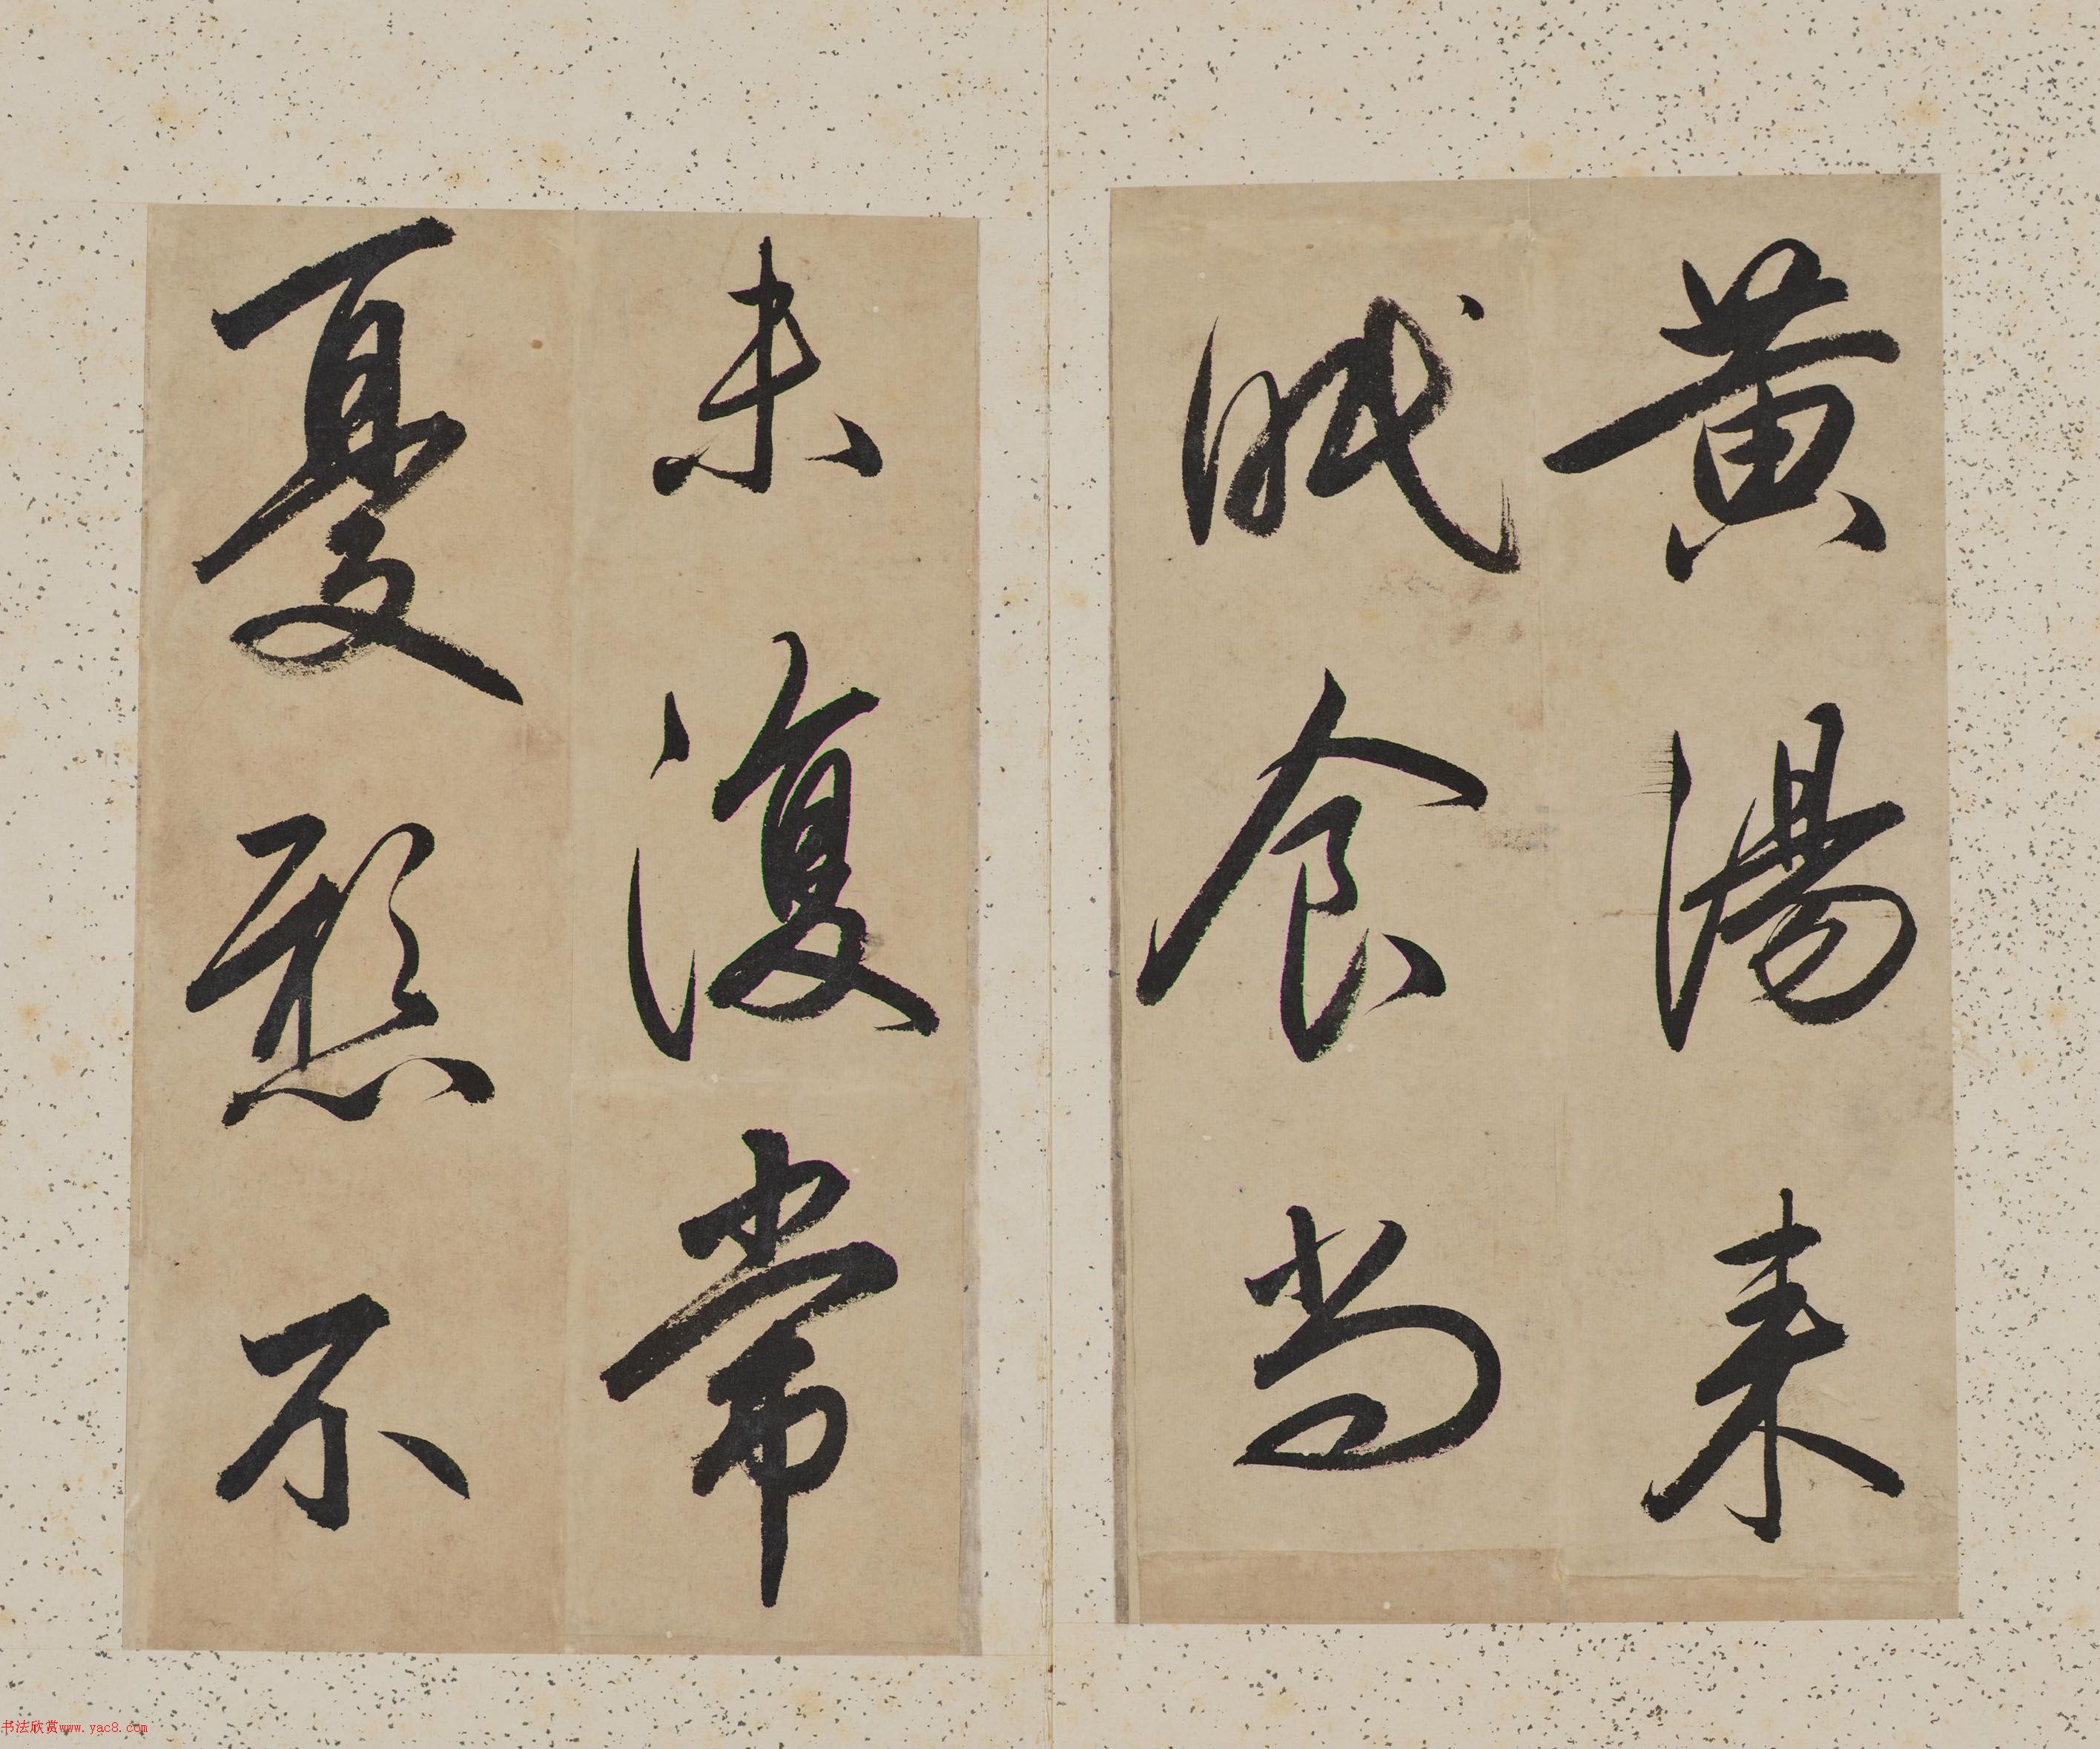 黄湯来
眠食尚
未復常
憂懸不
书法欣赏www.yac8.com